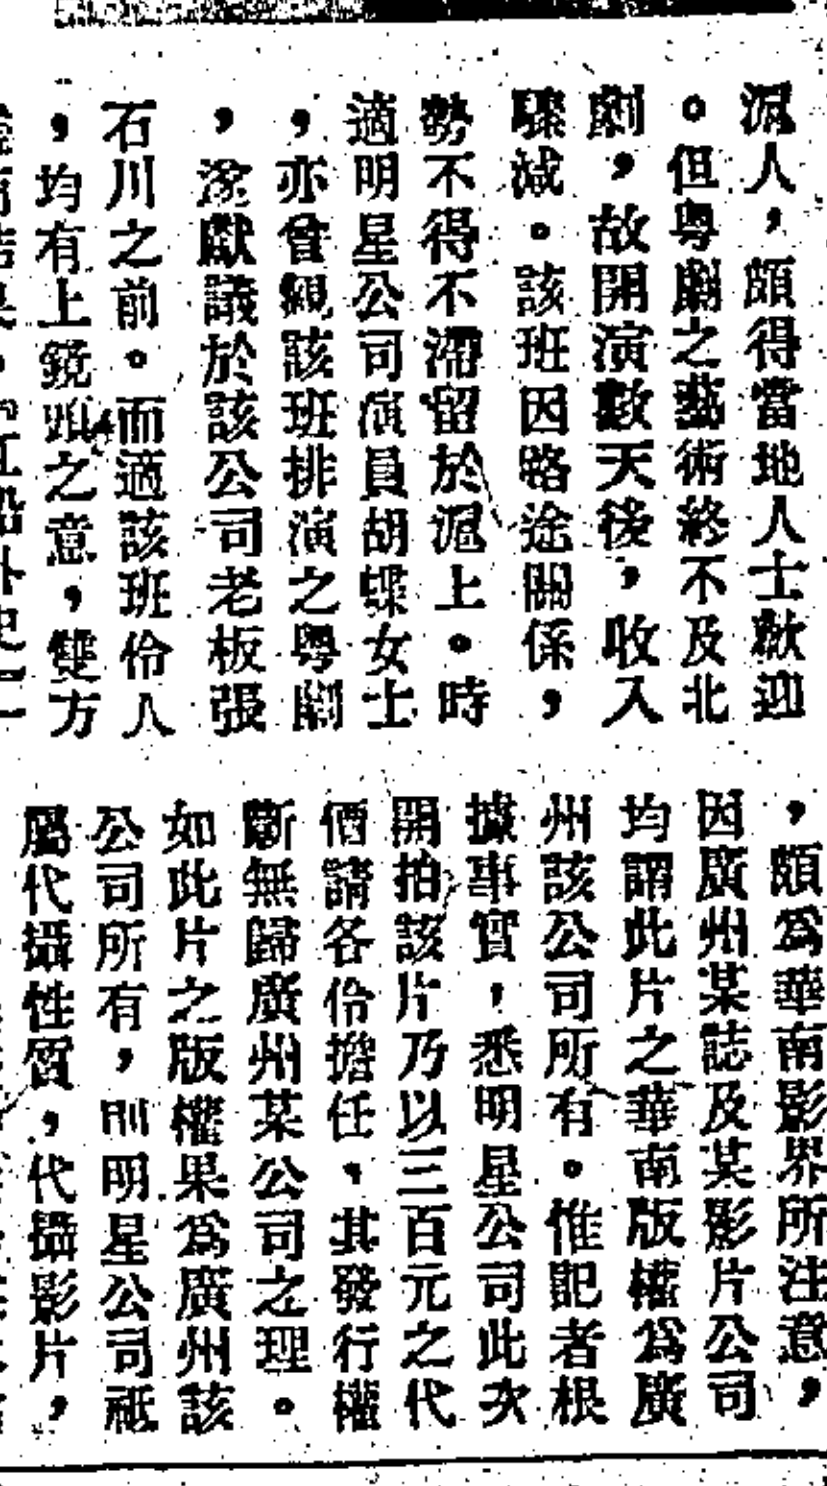 滬人，頗得當地人士歡迎
。但粤劇之藝術終不及北
劇，故開演數天後，收入
驟減。該班因路途關係，
勢不得不滯留於滬上。時
適明星公司演員胡蝶女士
，亦曾觀該班排演之粤劇
，遂獻議於該公司老板張
石川之前。而適該班伶人
，均有上鏡頭之意，雙方
結果，『紅船外史』
，頗爲華南影界所注意，
因廣州某誌及某影片公司
均謂此片之華南版權爲廣
州該公司所有。惟記者根
據事實，悉明星公司此次
開拍該片乃以三百元之代
價請各伶擔任，其發行權
斷無歸廣州某公司之理。
如此片之版權果爲廣州該
公司所有，則明星公司祗
屬代攝性質，代攝影片，